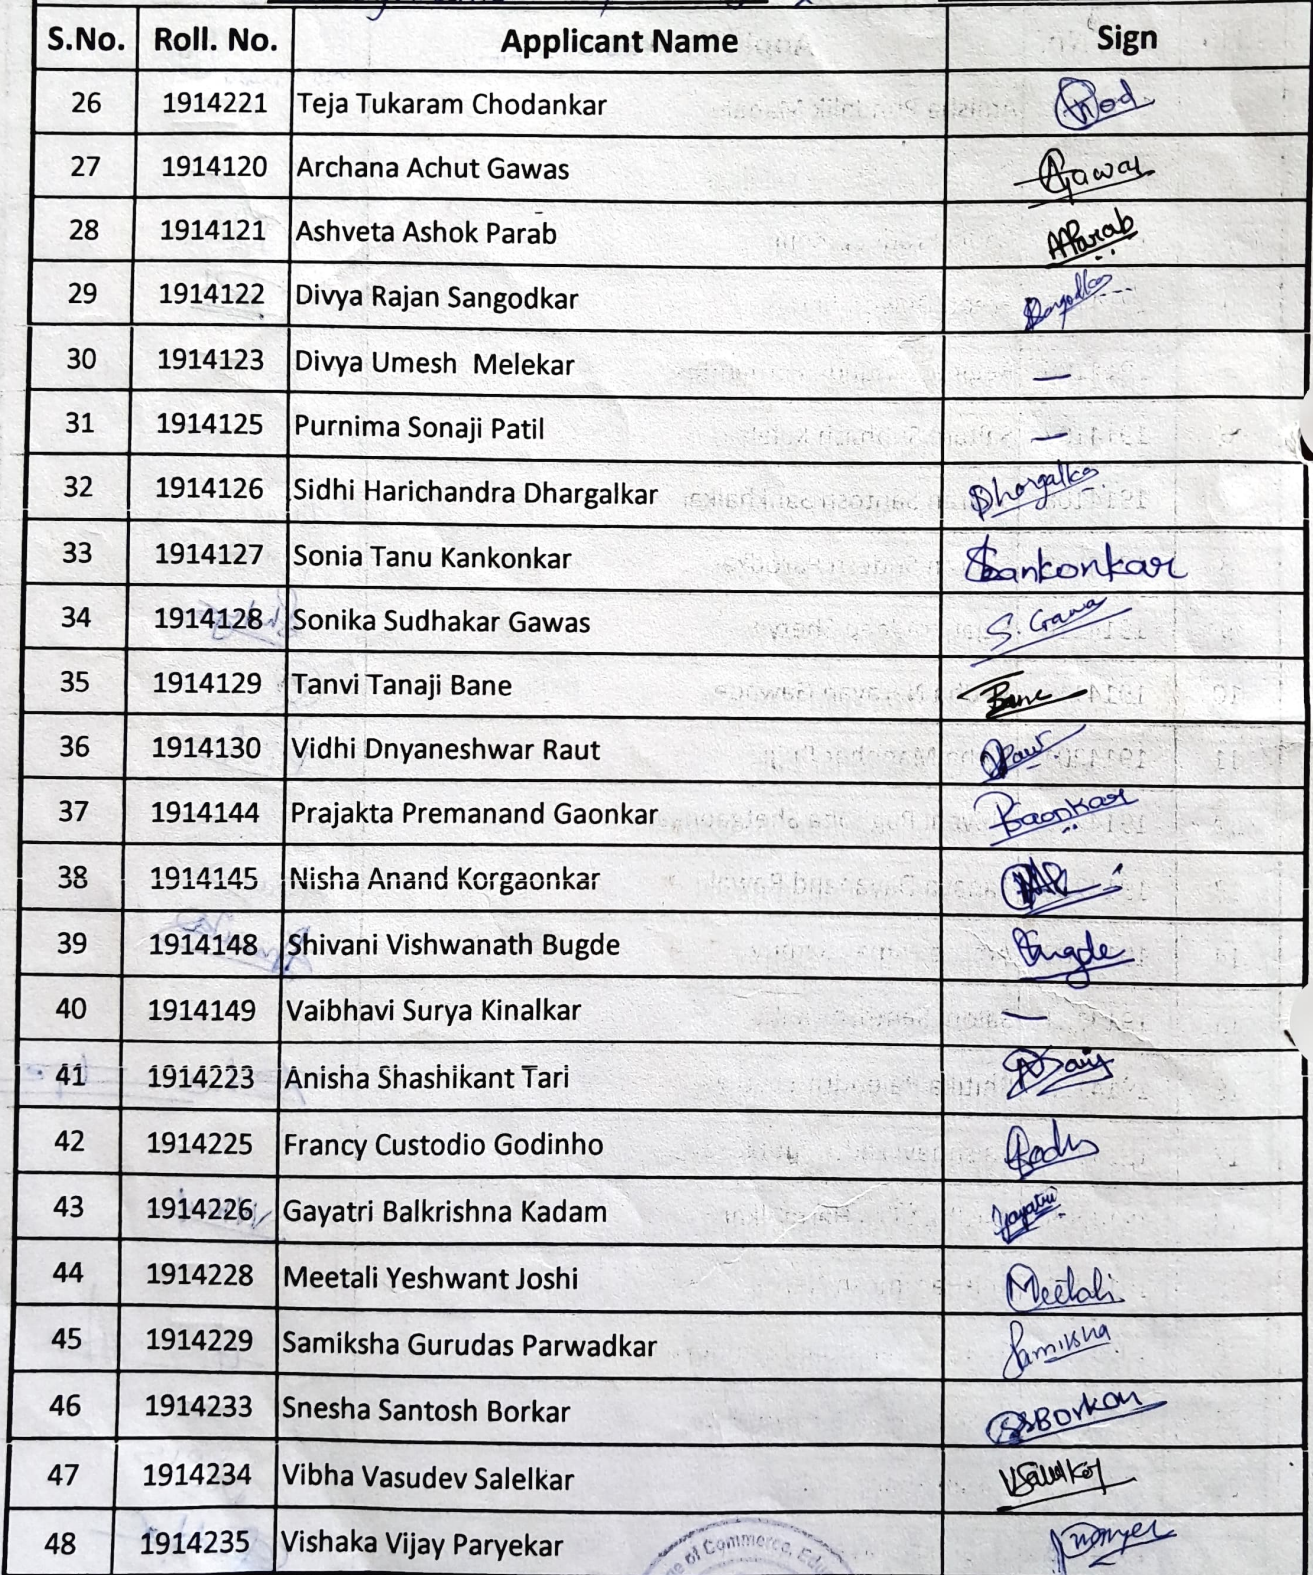 S.No. Roll. No. Applicant Name Sign
26 1914221 Teja Tukaram Chodankar
27 1914120 Archana Achut Gawas Gawas
28 1914121 Ashveta Ashok Parab AParab
29 1914122 Divya Rajan Sangodkar
30 1914123 Divya Umesh Melekar —
31 1914125 Purnima Sonaji Patil —
32 1914126 Sidhi Harichandra Dhargalkar
33 1914127 Sonia Tanu Kankonkar
34 1914128 Sonika Sudhakar Gawas
35 1914129 Tanvi Tanaji Bane Bane
36 1914130 Vidhi Dnyaneshwar Raut
37 1914144 Prajakta Premanand Gaonkar
38 1914145 Nisha Anand Korgaonkar
39 1914148 Shivani Vishwanath Bugde
40 1914149 Vaibhavi Surya Kinalkar —
41 1914223 Anisha Shashikant Tari
42 1914225 Francy Custodio Godinho
43 1914226 Gayatri Balkrishna Kadam Gayatri
44 1914228 Meetali Yeshwant Joshi Meetali
45 1914229 Samiksha Gurudas Parwadkar Samiksha
46 1914233 Snesha Santosh Borkar SSBorkar
47 1914234 Vibha Vasudev Salelkar
48 1914235 Vishaka Vijay Paryekar
of Commerce,